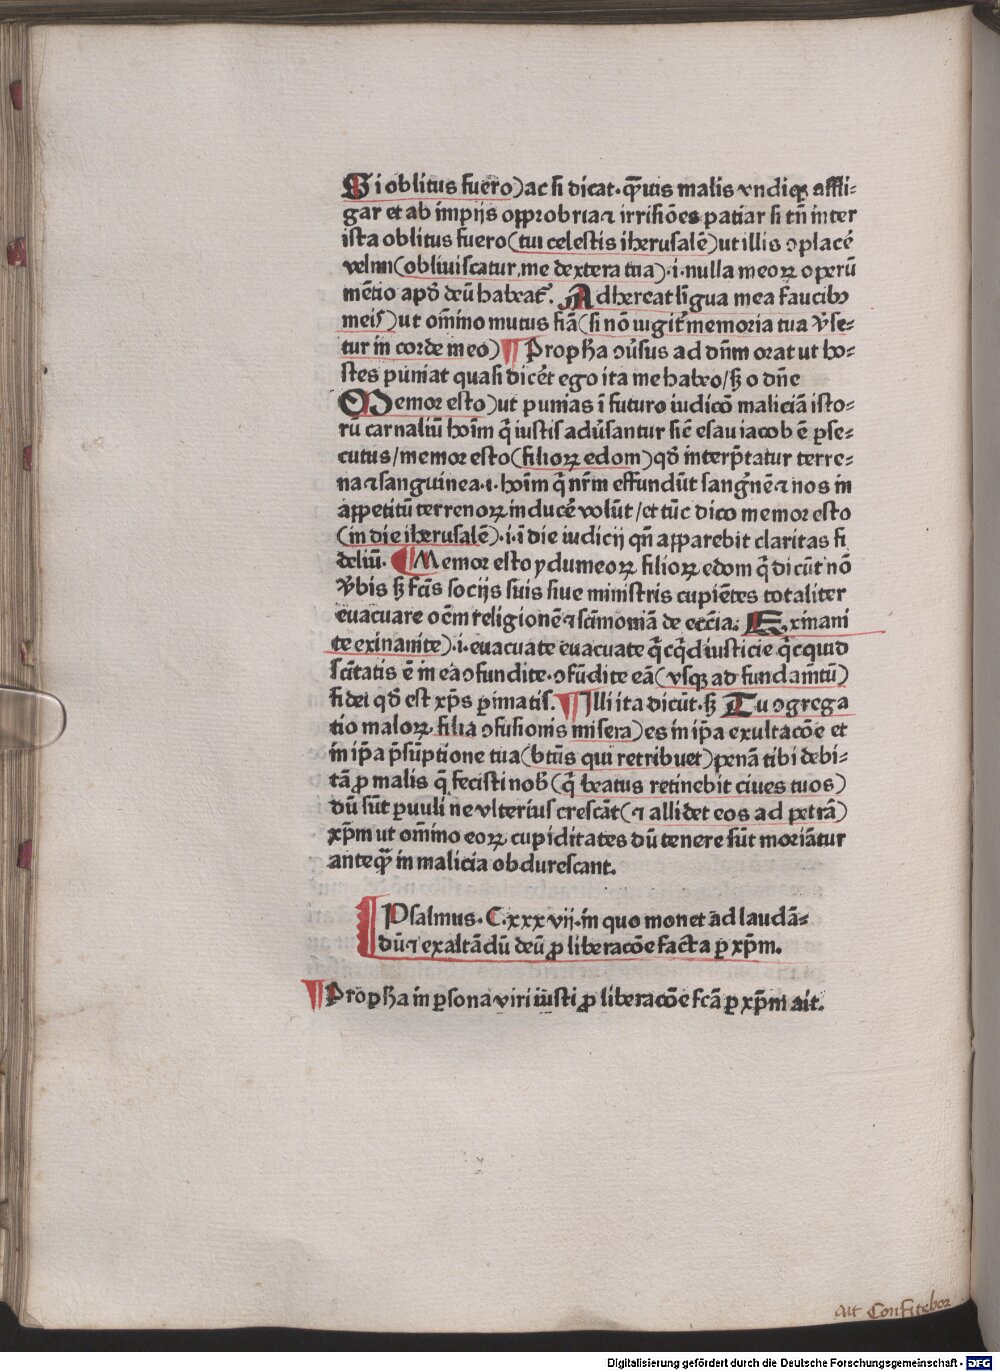 Si oblitus fuero) ac si dicat. qͣuis malis vndiqꝫ affli⸗
gar et ab impijs opprobria ⁊ irrisiōes patiar si tn̄ inter
ista oblitus fuero (tui celestis iherusalē) ut illis ↄplacē
velim (obliuiscatur me dextera tua) .i. nulla meoꝝ operū
mētio apd̄ deū habeat᷑. Adhereat lingua mea faucibꝫ
meis) ut om̄ino mutus fiā (si nō iugit᷑ memoria tua v̄se⸗
tur in corde meo) ¶ Propħa ↄu̓sus ad dn̄m orat ut ho⸗
stes puniat quasi dicēt ego ita me habeo / sꝫ o dn̄e
Memor esto) ut punias ī futuro iudicō maliciā isto⸗
rū carnaliū hoīm q̄ iustis adu̓santur sic̄ esau iacob ē ꝑse⸗
cutus / memor esto (filioꝝ edom) qd̄ interp̄tatur terre⸗
na ⁊ sanguinea .i. hoīm q̄ nr̄m effundūt sang̓nē ⁊ nos in
appetitū terrenoꝝ inducē volūt / et tūc dico memor esto
(in die iherusalē) .i. ī die iudicij qn̄ apparebit claritas fi
deliū. ¶ Memor esto ydumeoꝝ filioꝝ edom q̄ dicūt nō
v̄bis sꝫ fc̄is socijs suis siue ministris cupiētes totaliter
euacuare oēm religionē ⁊ sc̄imoniā de ecc̄ia. Exinani
te exinanite) .i. euacuate euacuate q̄cq̄d iusticie q̄cquid
sc̄itatis ē in ea ↄfundite. ↄfūdite eā (vsqꝫ ad fundam̄tū)
fidei qd̄ est xp̄s ꝑimatis. ¶ Illi ita dicūt. sꝫ Tu ↄgrega
tio maloꝝ. filia ↄfusionis misera) es in ip̄a exultacōe et
in ip̄a p̄sūptione tua (btūs qui retribuet) penā tibi debi⸗
tā ꝓ malis q̄ fecisti nob̄ (q̄ beatus retinebit ciues tuos)
dū sūt ꝑuuli ne vlterius crescāt (⁊ allidet eos ad petrā)
xp̄m ut om̄ino eoꝝ cupiditates dū tenere sūt moriātur
anteqͣ in malicia obdurescant.
Psalmus .C.xxxvij. in quo monet ad laudā⸗
dū ⁊ exaltādū deū ꝓ liberacōe facta ꝑ xp̄m.
¶ Propħa in ꝑsona viri iusti ꝓ liberacōe fc̄a ꝑ xp̄m ait.
ait Confitebor
Digitalisierung gefördert durch die Deutsche Forschungsgemeinschaft - DFG